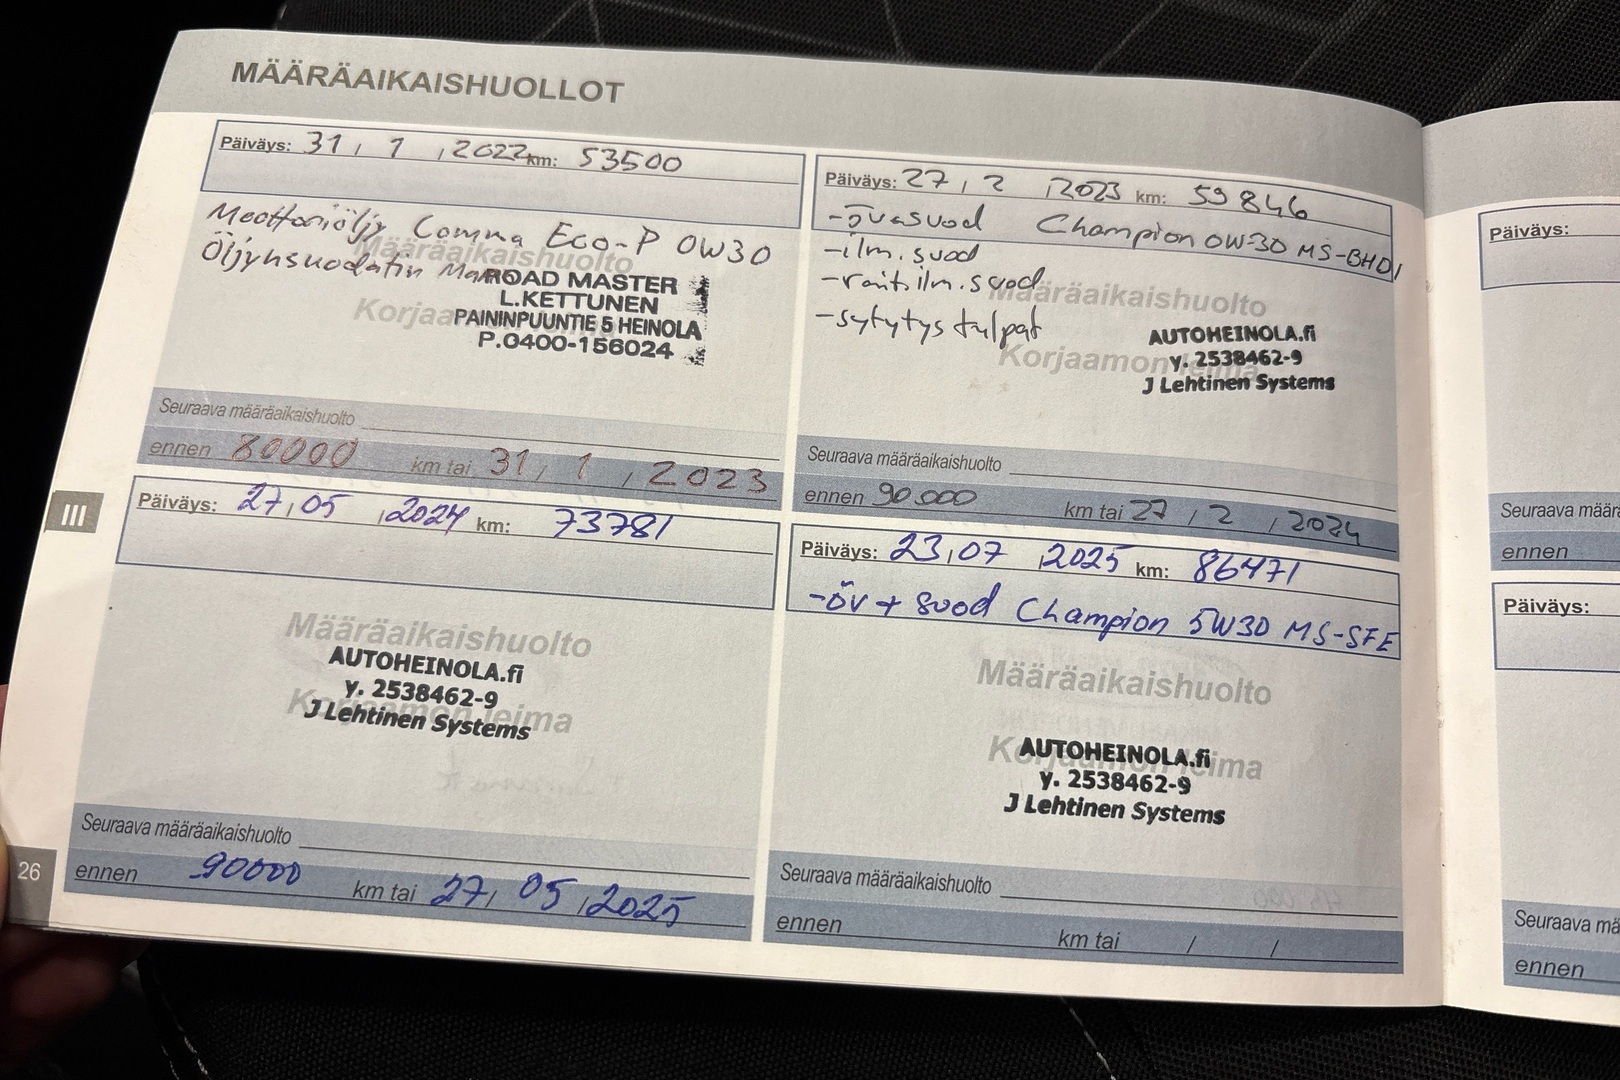 MÄÄRÄAIKAISHUOLLOT
Päiväys: 31 / 1 / 2022 km: 53500
Moottoriöljy Comma Eco-P 0W30
Öljynsuodatin
Määräaikaishuolto
Korjaamon leima
ROAD MASTER
L.KETTUNEN
PAININPUUNTIE 5 HEINOLA
P.0400-156024
Seuraava määräaikaishuolto
ennen 80000 km tai 31 / 1 / 2023
Päiväys: 27 / 2 / 2023 km: 59846
-öv+suod Champion 0W-30 MS-BHDI
-ilm.suod
-rait.ilm.suod
-sytytystulpat
Määräaikaishuolto
Korjaamon leima
AUTOHEINOLA.fi
y. 2538462-9
J Lehtinen Systems
Seuraava määräaikaishuolto
ennen 90000 km tai 27 / 2 / 2024
III
Päiväys: 27 / 05 / 2024 km: 73781
Määräaikaishuolto
Korjaamon leima
AUTOHEINOLA.fi
y. 2538462-9
J Lehtinen Systems
Seuraava määräaikaishuolto
ennen 90000 km tai 27 / 05 / 2025
Päiväys: 23 / 07 / 2025 km: 86471
-öv + suod Champion 5W30 MS-SFE
Määräaikaishuolto
Korjaamon leima
AUTOHEINOLA.fi
y. 2538462-9
J Lehtinen Systems
Seuraava määräaikaishuolto
ennen km tai / /
26
Päiväys:
Seuraava määrä
ennen
Päiväys:
Seuraava mä
ennen